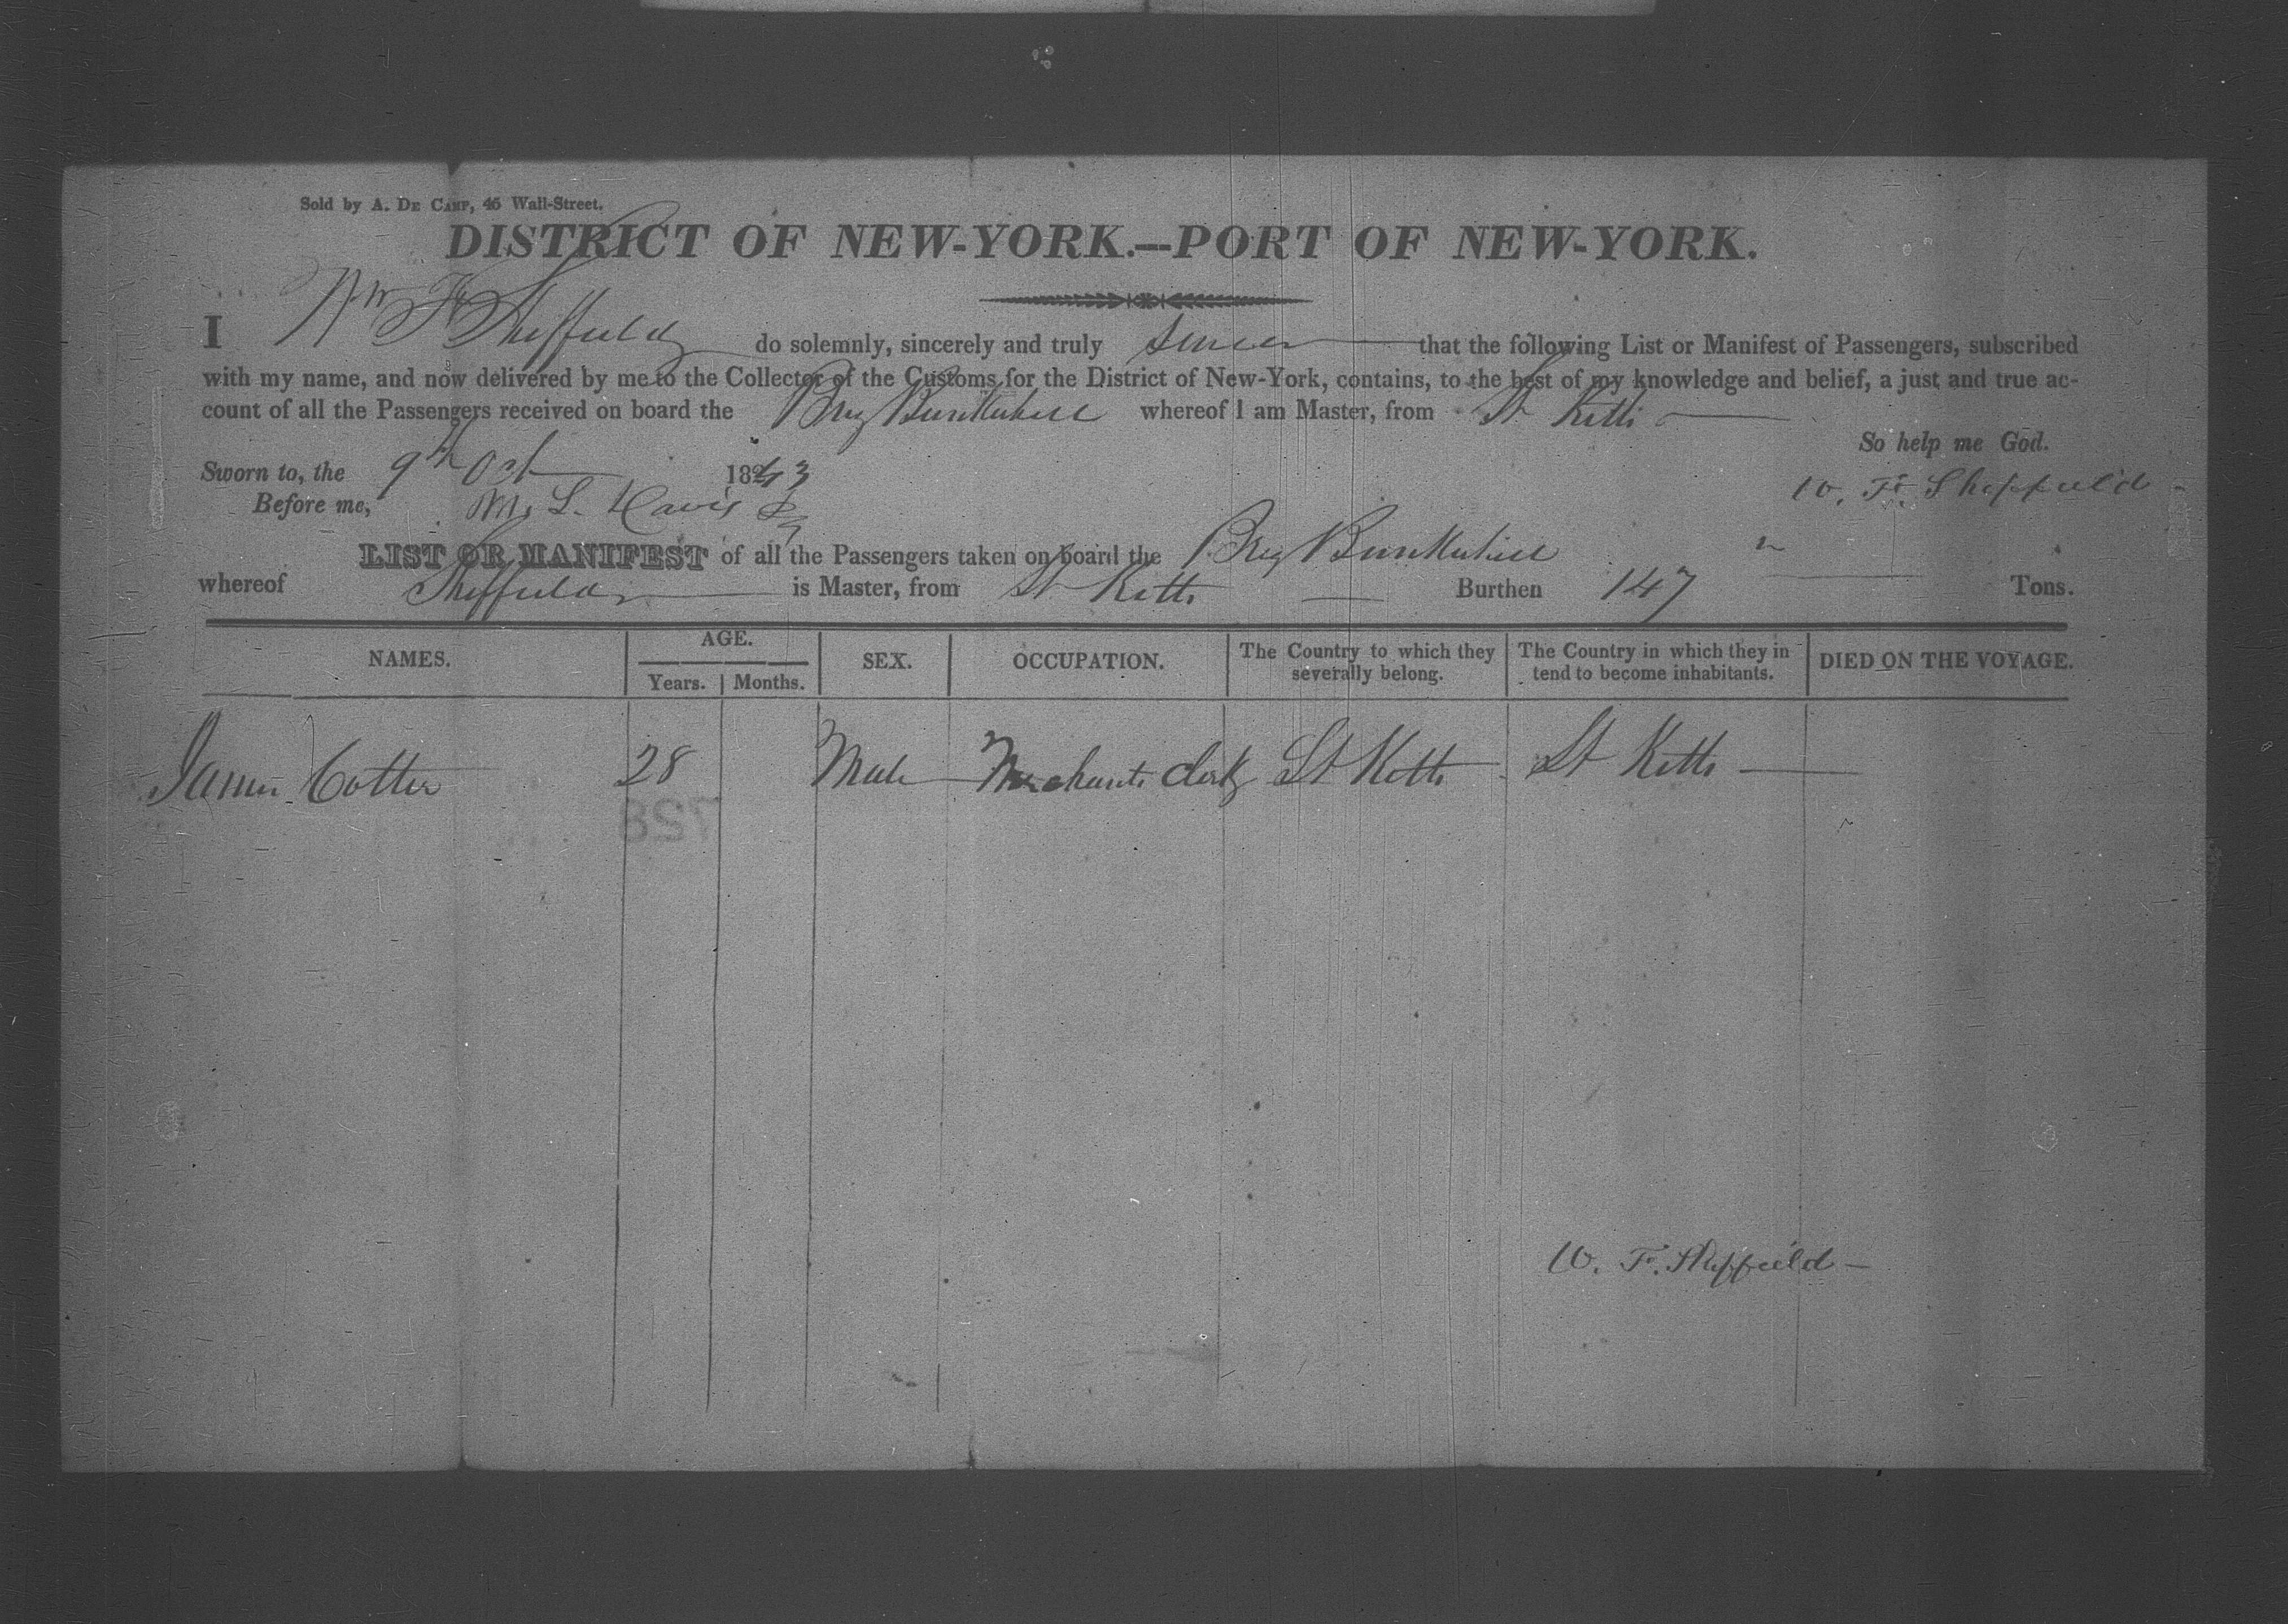 Sold by A. De Camp, 45 Wall-Street.
DISTRICT OF NEW-YORK.—PORT OF NEW-YORK.
I Wm F Sheffield do solemnly, sincerely and truly swear that the following List or Manifest of Passengers, subscribed
with my name, and now delivered by me to the Collector of the Customs for the District of New-York, contains, to the best of my knowledge and belief, a just and true ac-
count of all the Passengers received on board the Brig Bunkerhill whereof I am Master, from St Kitts
So help me God.
Sworn to, the 9th Oct 1843
W. F. Sheffield
Before me, M. L. Davis
LIST OR MANIFEST of all the Passengers taken on board the Brig Bunkerhill
whereof Sheffield is Master, from St Kitts Burthen 147 Tons.
NAMES. AGE. Years. Months. SEX. OCCUPATION. The Country to which they severally belong. The Country in which they in tend to become inhabitants. DIED ON THE VOYAGE.
James Cotter 28 Male Merchants Clerk St Kitts St Kitts
758
W. F. Sheffield